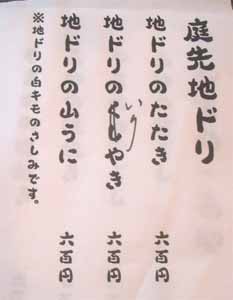 庭先地ドリ
地ドリのたたき 六百円
地ドリのいりやき 六百円
地ドリの山うに 六百円
※地ドリの白キモのさしみです。